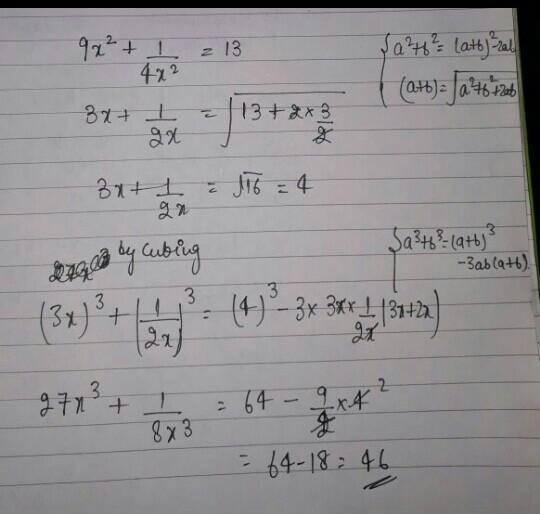 9x² + 1/4x² = 13
{a²+b² = (a+b)²-2ab
(a+b) = √a²+b²+2ab
3x + 1/2x = √13 + 2 × 3/2
3x + 1/2x = √16 = 4
by cubing
{a³+b³ = (a+b)³
-3ab(a+b).
(3x)³ + (1/2x)³ = (4)³ - 3 × 3x × 1/2x (3x+2x)
27x³ + 1/8x³ = 64 - 9/2 × 4 2
= 64-18 = 46